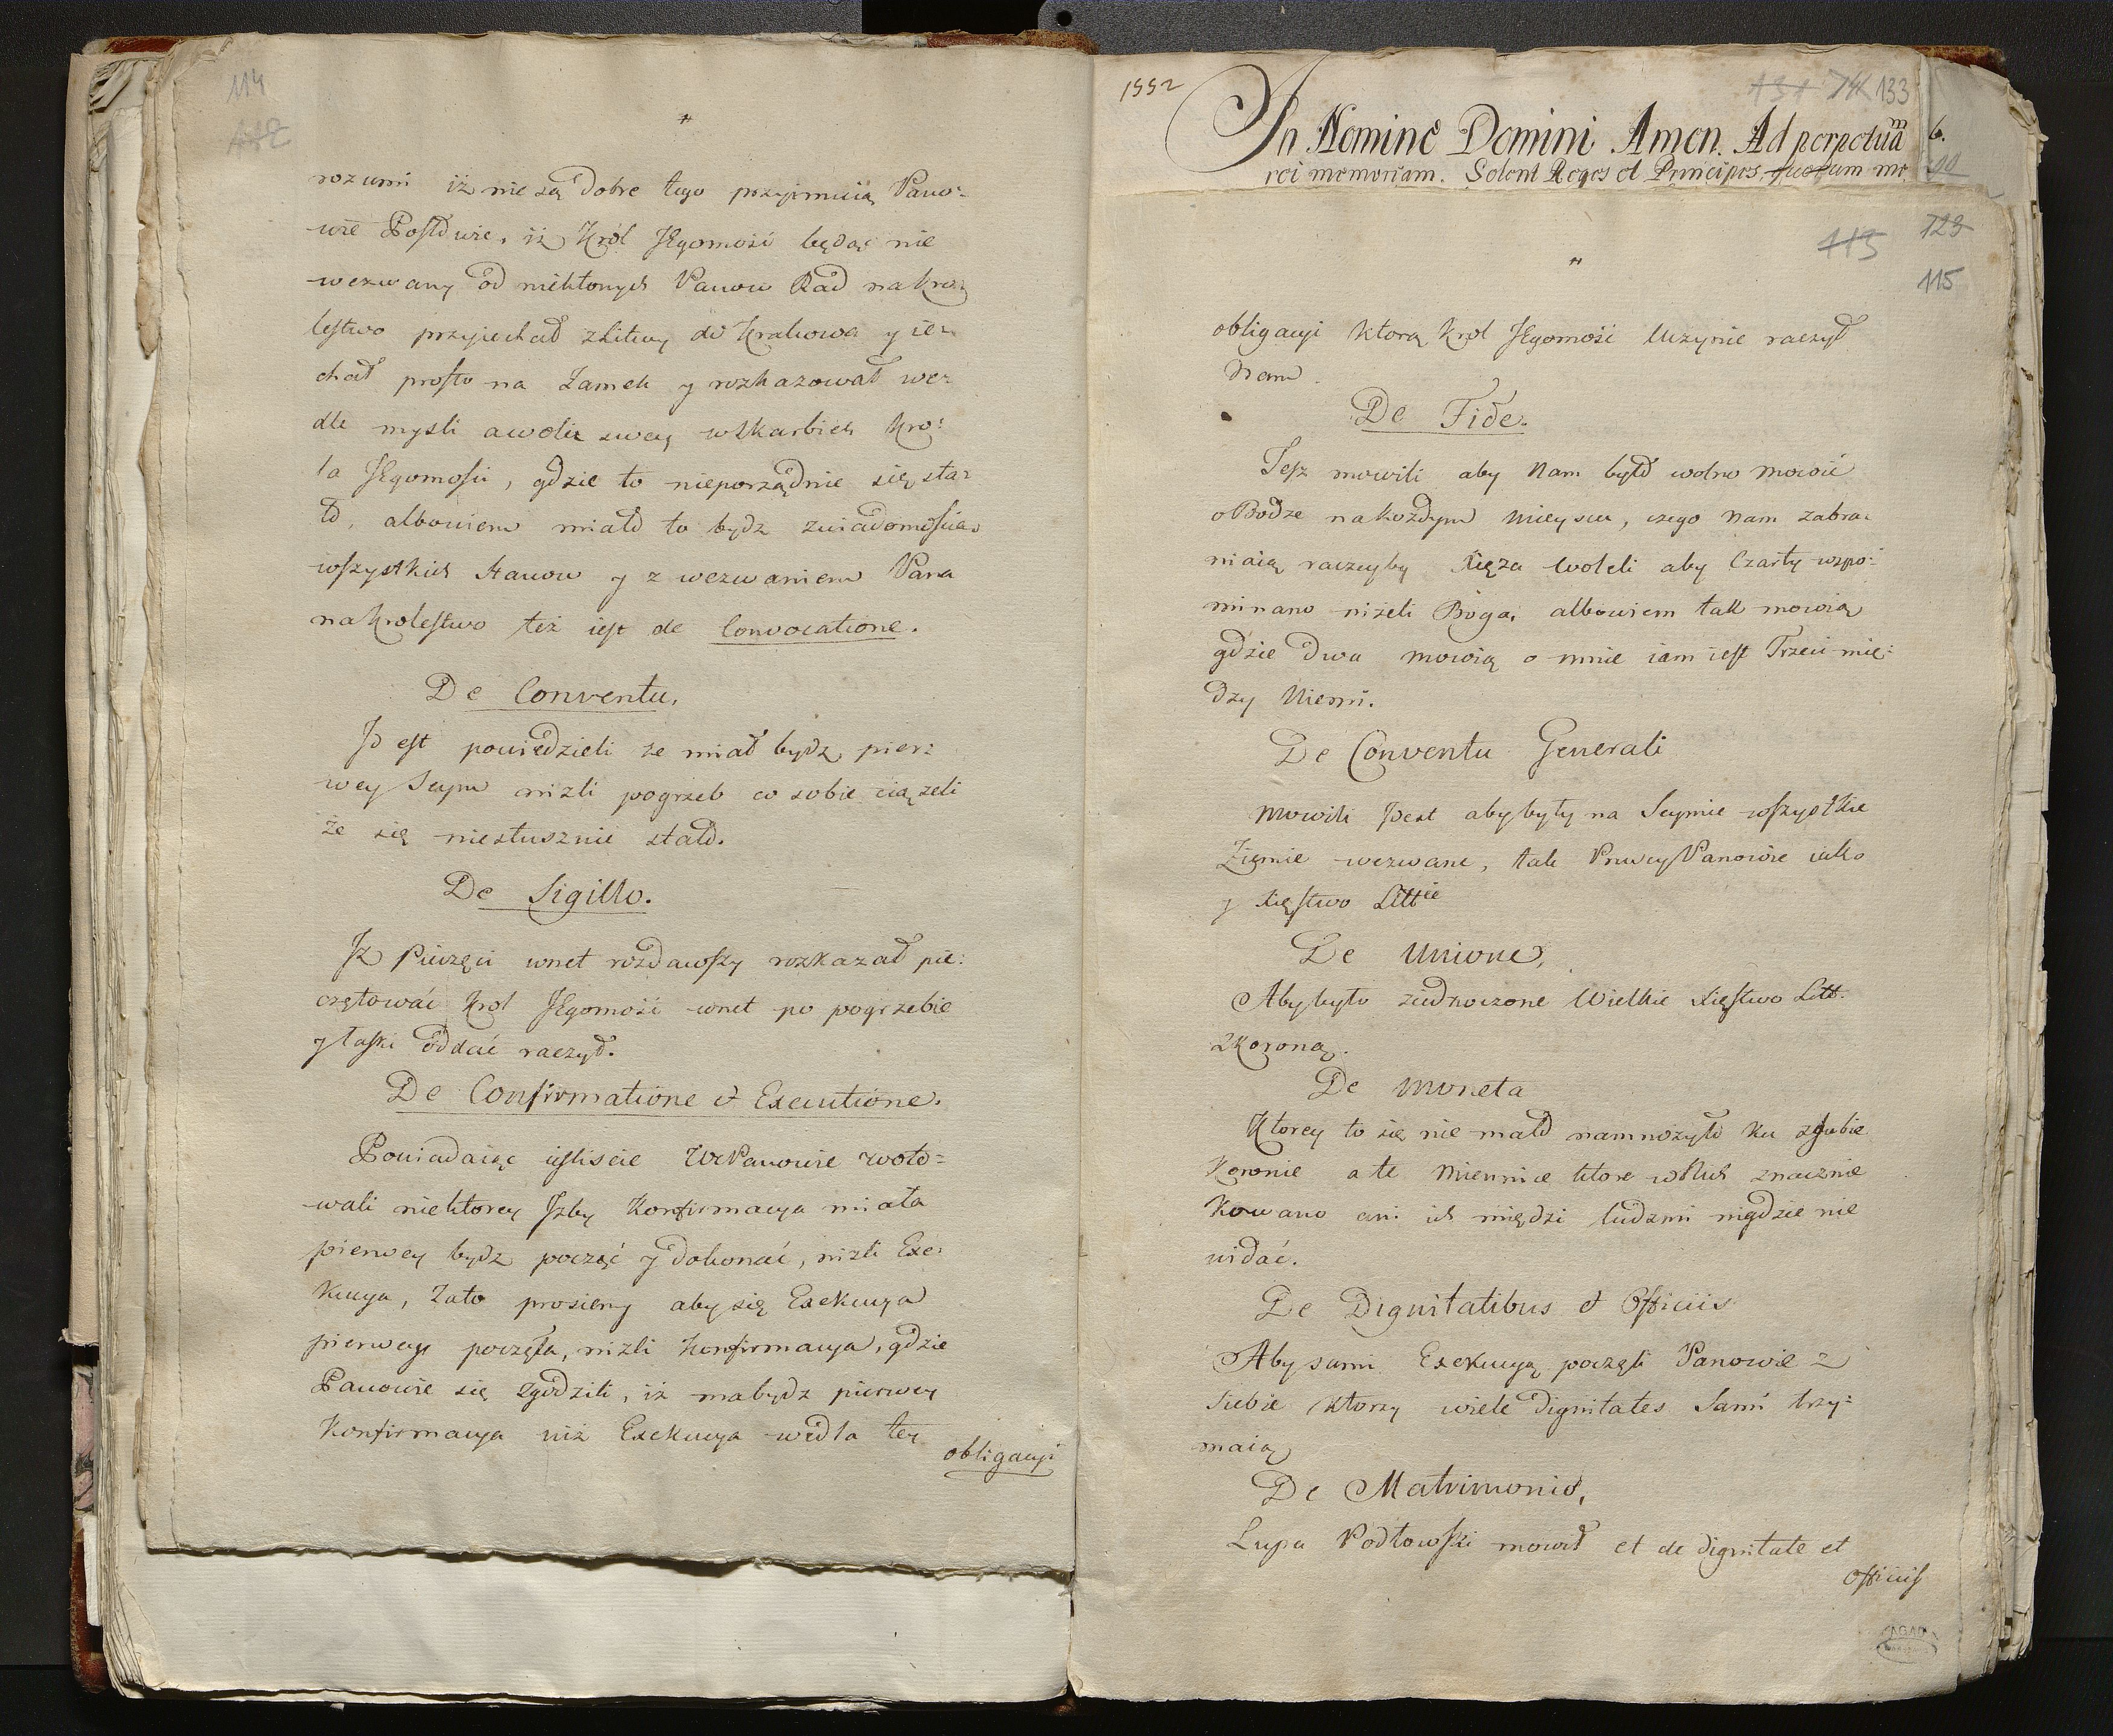 114
112
rozumi iż nie są dobre tego przyimuią Pano=
wie Posłowie, iż Król JEgomość będąc nie
wezwany od niektorych Panow Rad na Kro=
lestwo przyiechał z Litwy do Krakowa y ie=
chał prosto na Zamek y rozkazował we=
dle mysli a woli swey w Skarbiech Kro=
la JEgomości, gdzie to nieporządnie się sta=
ło, albowiem miało to bydz z wiadomością
wszystkich Stanow y z wezwaniem Pana
na Krolestwo też iest de Convocatione.
De Conventu.
powiedzieli że miał bydz pier=
wey Seym niżli pogrzeb co sobie ciążeli
że się niesłusznie stało.
De Sigillo.
Iż Pieczęci wnet rozdawszy rozkazał pie=
czętować Krol JEgomość wnet po pogrzebie
y łaski oddać raczył.
De Confirmatione et Executione.
Powiadaiąc iesliscie WPanowie woto=
wali niektorzy Iżby Konfirmacya miała
pierwey bydz począć y dokonać, niżli Exe=
kucya, Zato prosiemy aby się Exekucya
pierwey poczęła, niżli Konfirmacya, gdzie
Panowie się zgodzili, iż ma bydz pierwey
Konfirmacya niż Exekucya wedla tey
obligacyi
1552
131 74 133
In Nomine Domini Amen. Ad perpetuam
rei memoriam. Solent Reges et Principes quorum me
6.
90
113 123
115
obligacyi ktorą Krol JEgomość Uczynić raczył
Nam.
De Fide.
Też mowili aby Nam było wolno mowić
o Bodze na kożdym Mieyscu, czego Nam zabra=
niaią raczeyby Xięża woleli aby Czarty wspo=
minano niżeli Boga, albowiem tak mowią
gdzie dwa mowią o mnie iam iest Trzeci mię=
dzy Niemi.
De Conventu Generali
Mowili aby były na Seymie wszystkie
Ziemie wezwane, tak Pruscy Panowie iako
y Xięstwo Littie
De Unione,
Aby było ziednoczone Wielkie Xięstwo Litt.
z Koroną.
De Moneta
Ktorey to się nie mało namnożyło ku zgubie
Koronie a te Miennice ktore znacznie
Kowano ani ich międzi ludzmi nigdzie nie
widać.
De Dignitatibus et Officiis
Aby sami Exekucyą poczęli Panowie z
Siebie ktorzy wiele dignitates Sami trzy=
maią
De Matrimonio,
Lupa Podlowski mowił et de dignitate et
officiis
AGAD